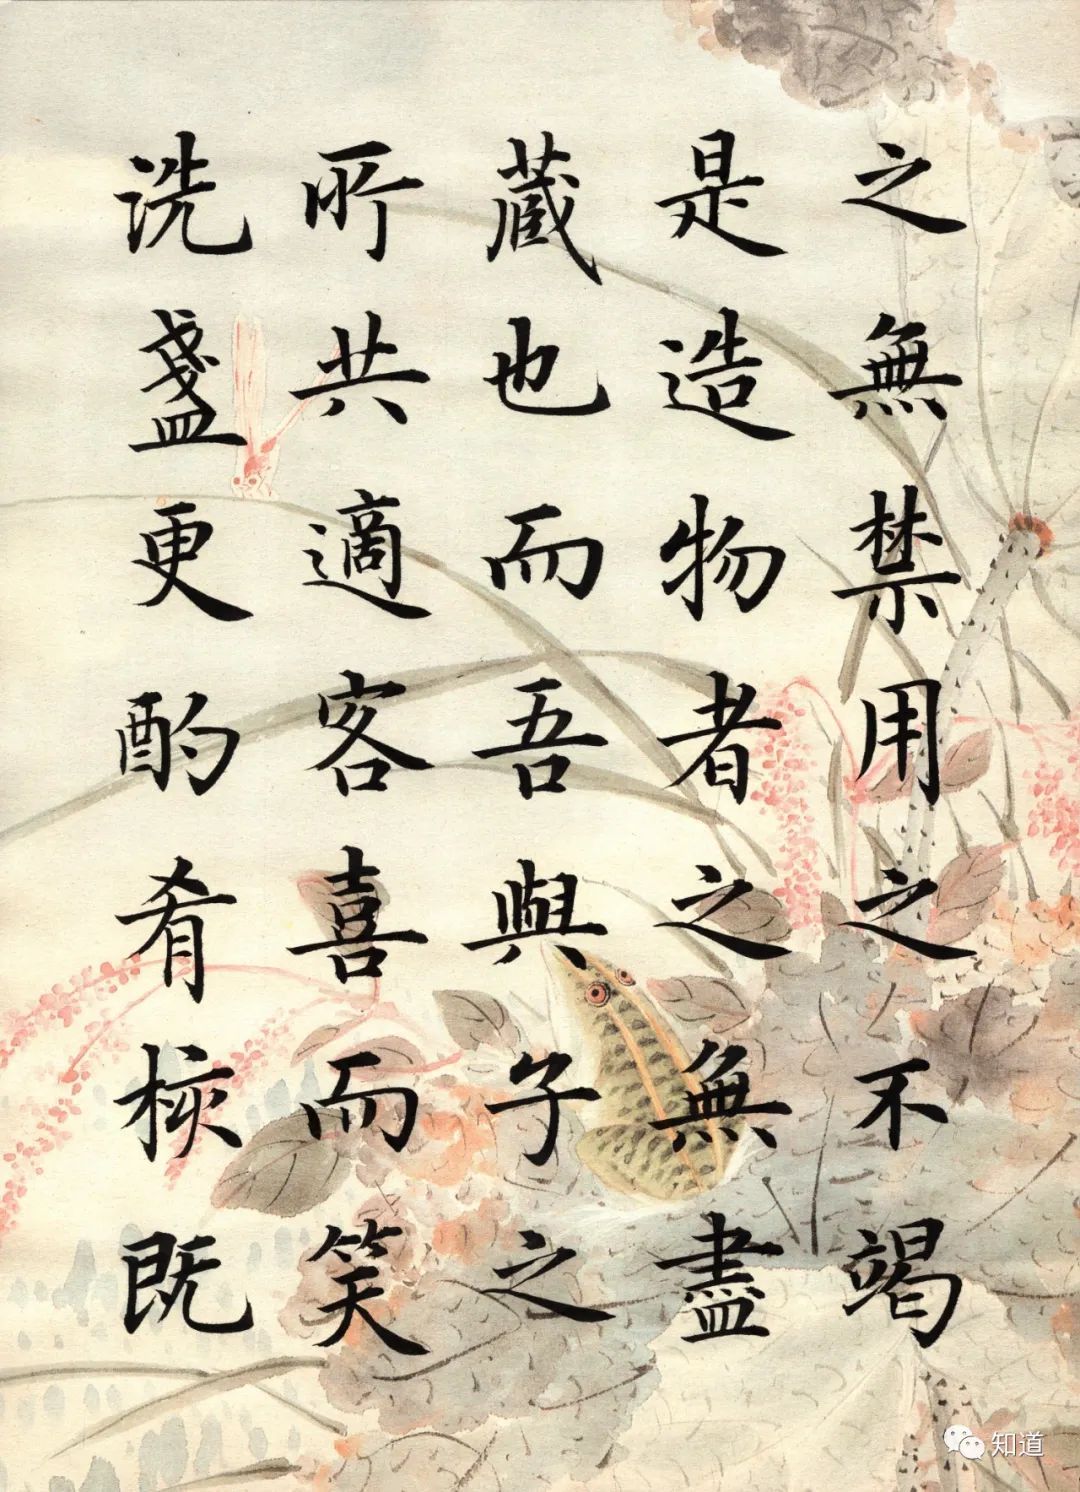 之無禁用之不竭
是造物者之無盡
蔵也而吾與子之
所共適客喜而笑
洗盏更酌肴核既
知道